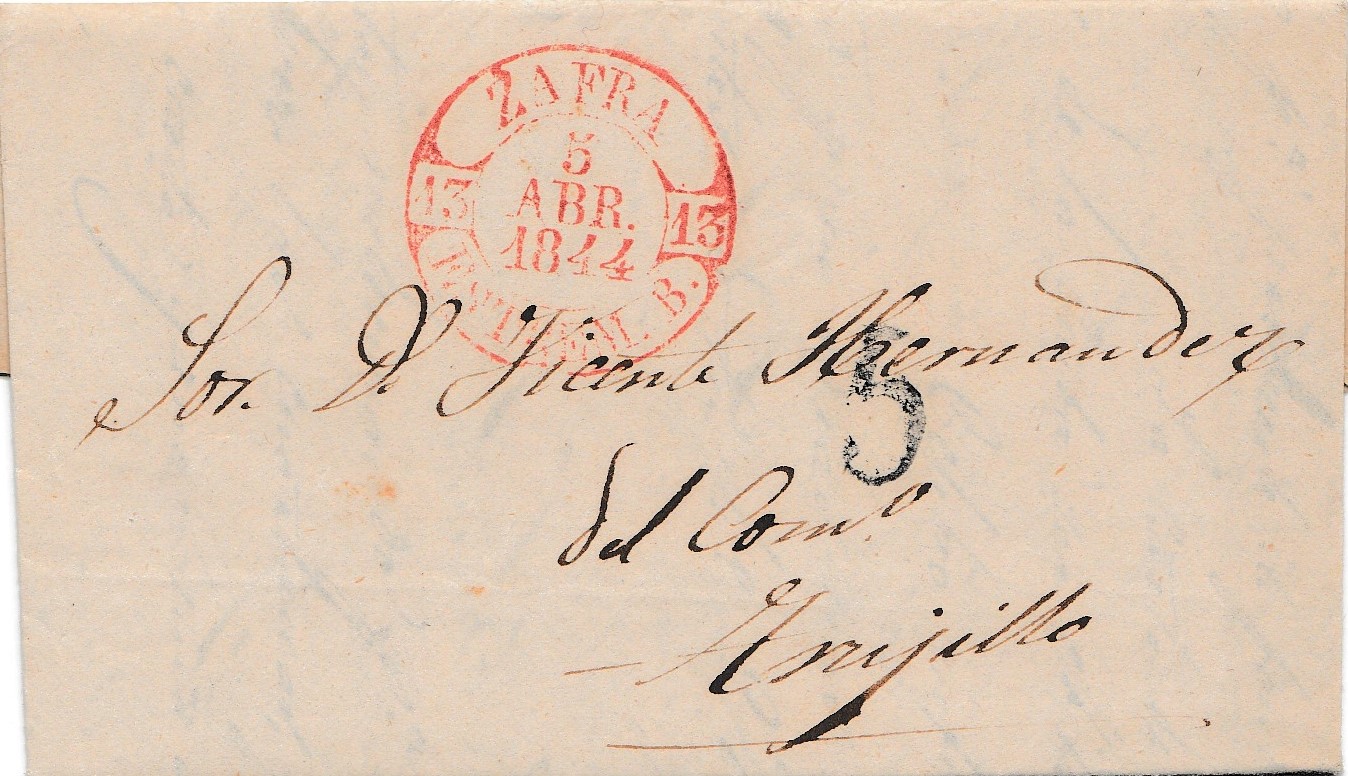 ZAFRA
5
ABR.
1844
13
13
ESTREM. B.
Sor. D. Vicente Hernandez
5
del Como.
Trujillo